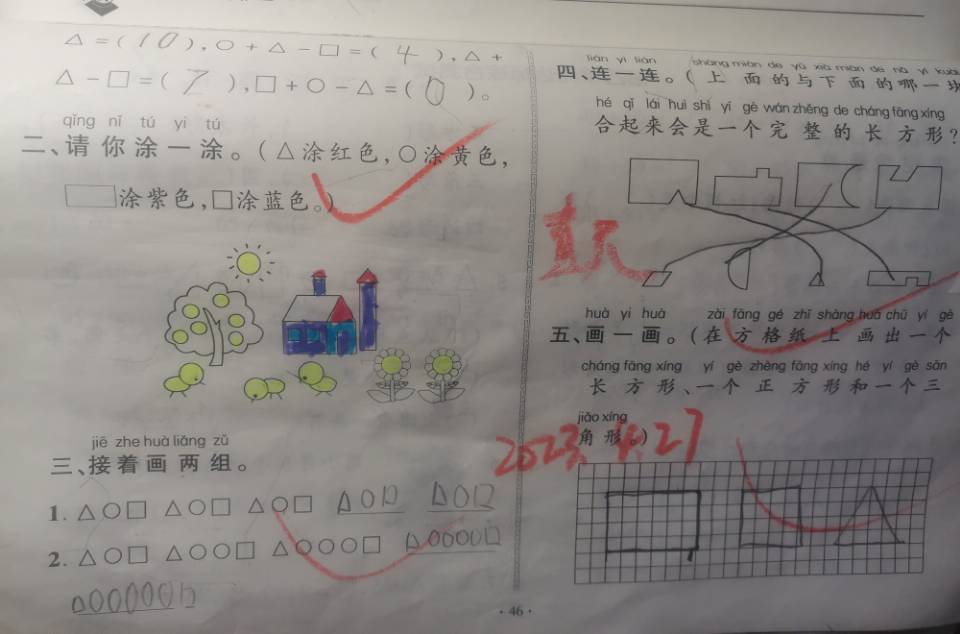 △=(10),○+△-□=(4),△+
△-□=(7),□+○-△=(0)。
qǐng nǐ tú yi tú
二、请你涂一涂。(△涂红色,○涂黄色,
▭涂紫色,□涂蓝色。)
jiē zhe huà liǎng zǔ
三、接着画两组。
1. △○□ △○□ △○□ △○□ △○□
2. △○□ △○○□ △○○○□ △○○○○□
△○○○○○□
lián yi lián shàng miàn de yǔ xià miàn de nǎ yí kuài
四、连一连。(上面的与下面的哪一块
hé qǐ lái huì shì yí gè wán zhěng de cháng fāng xíng
合起来会是一个完整的长方形?
huà yi huà zài fāng gé zhǐ shàng huà chū yí gè
五、画一画。(在方格纸上画出一个
cháng fāng xíng yí gè zhèng fāng xíng hé yí gè sān
长方形、一个正方形和一个三
jiǎo xíng
角形。)
·46·